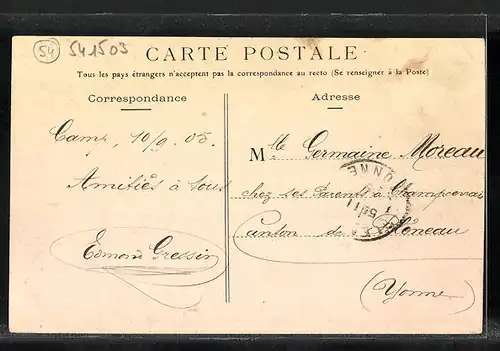 54
541503
CARTE POSTALE
Tous les pays étrangers n'acceptent pas la correspondance au recto (Se renseigner à la Poste)
Correspondance
Adresse
Camp, 10/9.05.
Mlle Germaine Moreau
Amitiés à tous
chez ses Parents à Champceva
Edmond Gressin
Canton de Bléneau
(Yonne)
YONNE